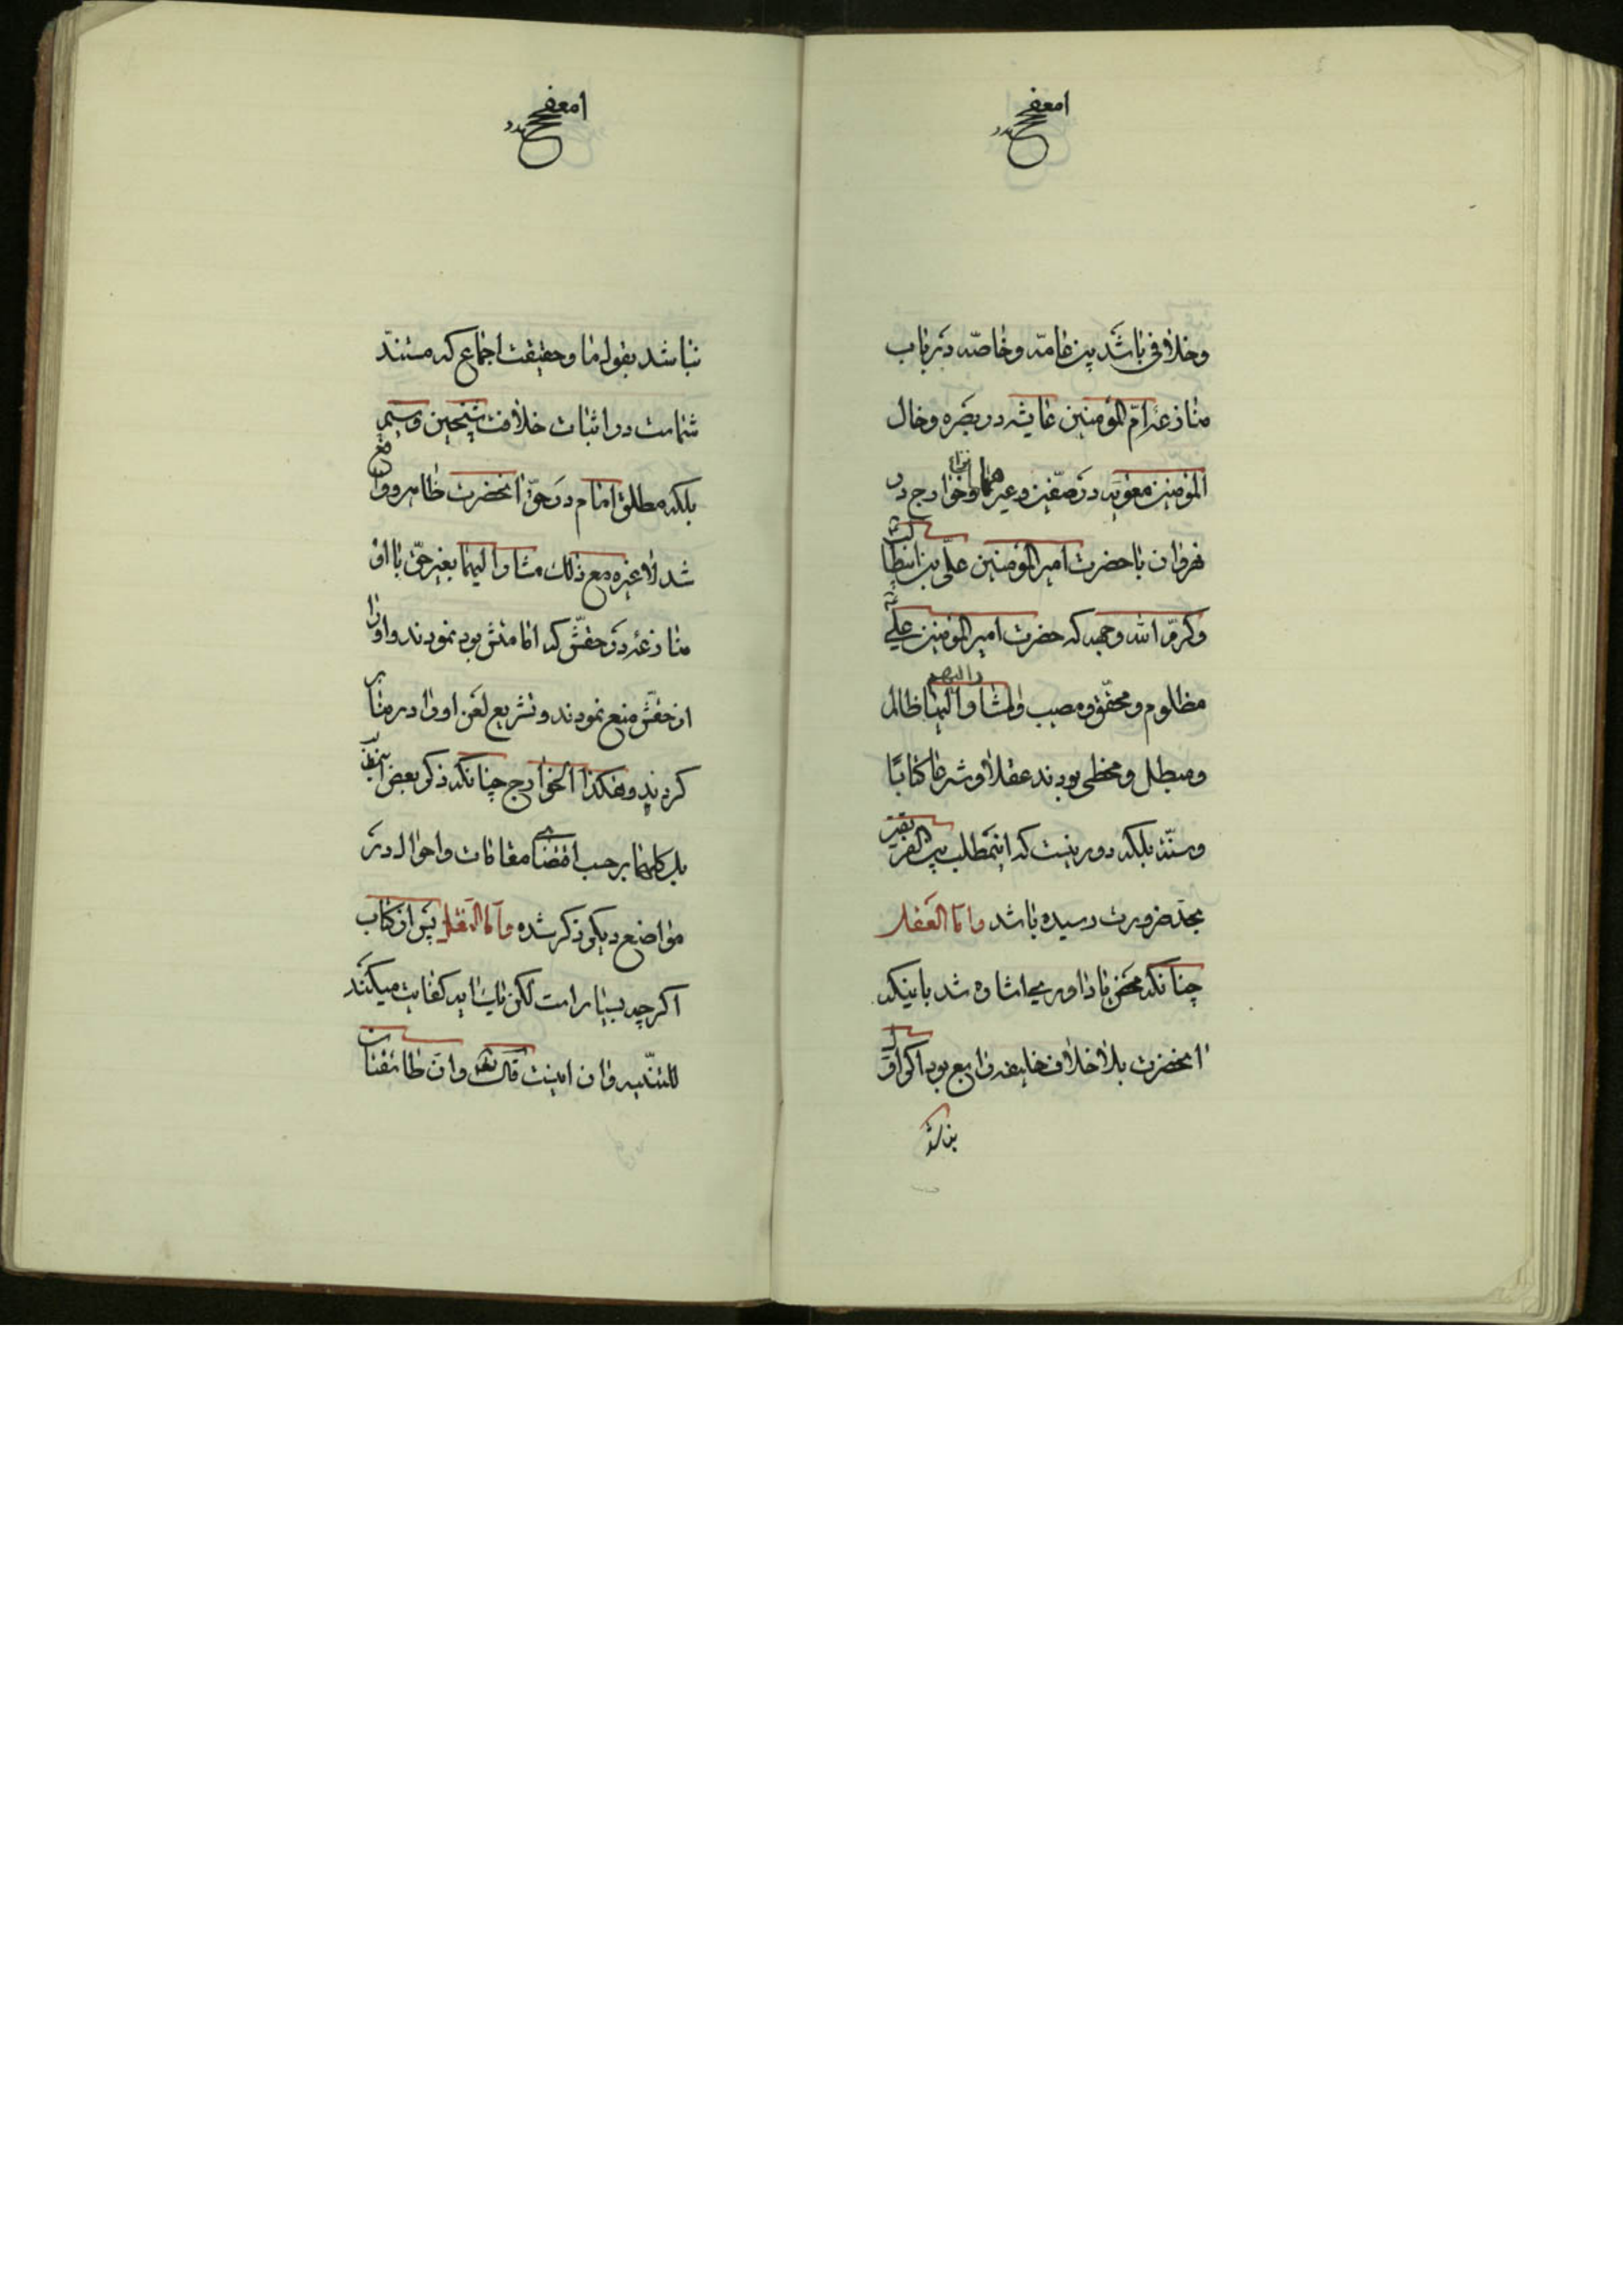 وخلافی باشد بین عامّه وخاصّه در باب
منازعهٔ امّ المؤمنین عایشه در بصره وخال
المؤمنین معویه در صفّین وغیرهما وخوارج در
نهروان با حضرت امیر المؤمنین علّی بن ابیطالب
وکرّم الله وجهه که حضرت امیر المؤمنین علی
مظلوم ومحقّ ومصیب والمشار الیهما ظالم
ومبطل ومخطی بودند عقلاً وشرعاً کتاباً
وسنّة بلکه دور نیست که اینمطلب بین الفریقین
بحدّ ضرورت رسیده باشد وامّا العقل
چنانکه محض یاداوری اشاره شد باینکه
انحضرت بلا خلاف خلیفه رابع بود اکر اوّل
نباشد بقول ما وحقیقت اجماع که مستند
شماست در اثبات خلافت شیخین وسیم
بلکه مطلق امام در حقّ انحضرت ظاهر وواقع
شد لا غیره مع ذلک مشار الیهما بغیر حقّ با او
منازعه در حقّش که امامتش بود نمودند واورا
از حقّش منع نمودند وتشریع لعن اورا در منابر
کردند وهکذا الخوارج چنانکه ذکر بعض
بل کلهما بر حسب اقتضای مقامات واحوال در
مواضع دیکر ذکر شده وامّا النقل پس از کتاب
اکرچه بسیار است لکن یک ایه کفایت میکند
للتنبیه وان اینست قال تعه وان طائفتان